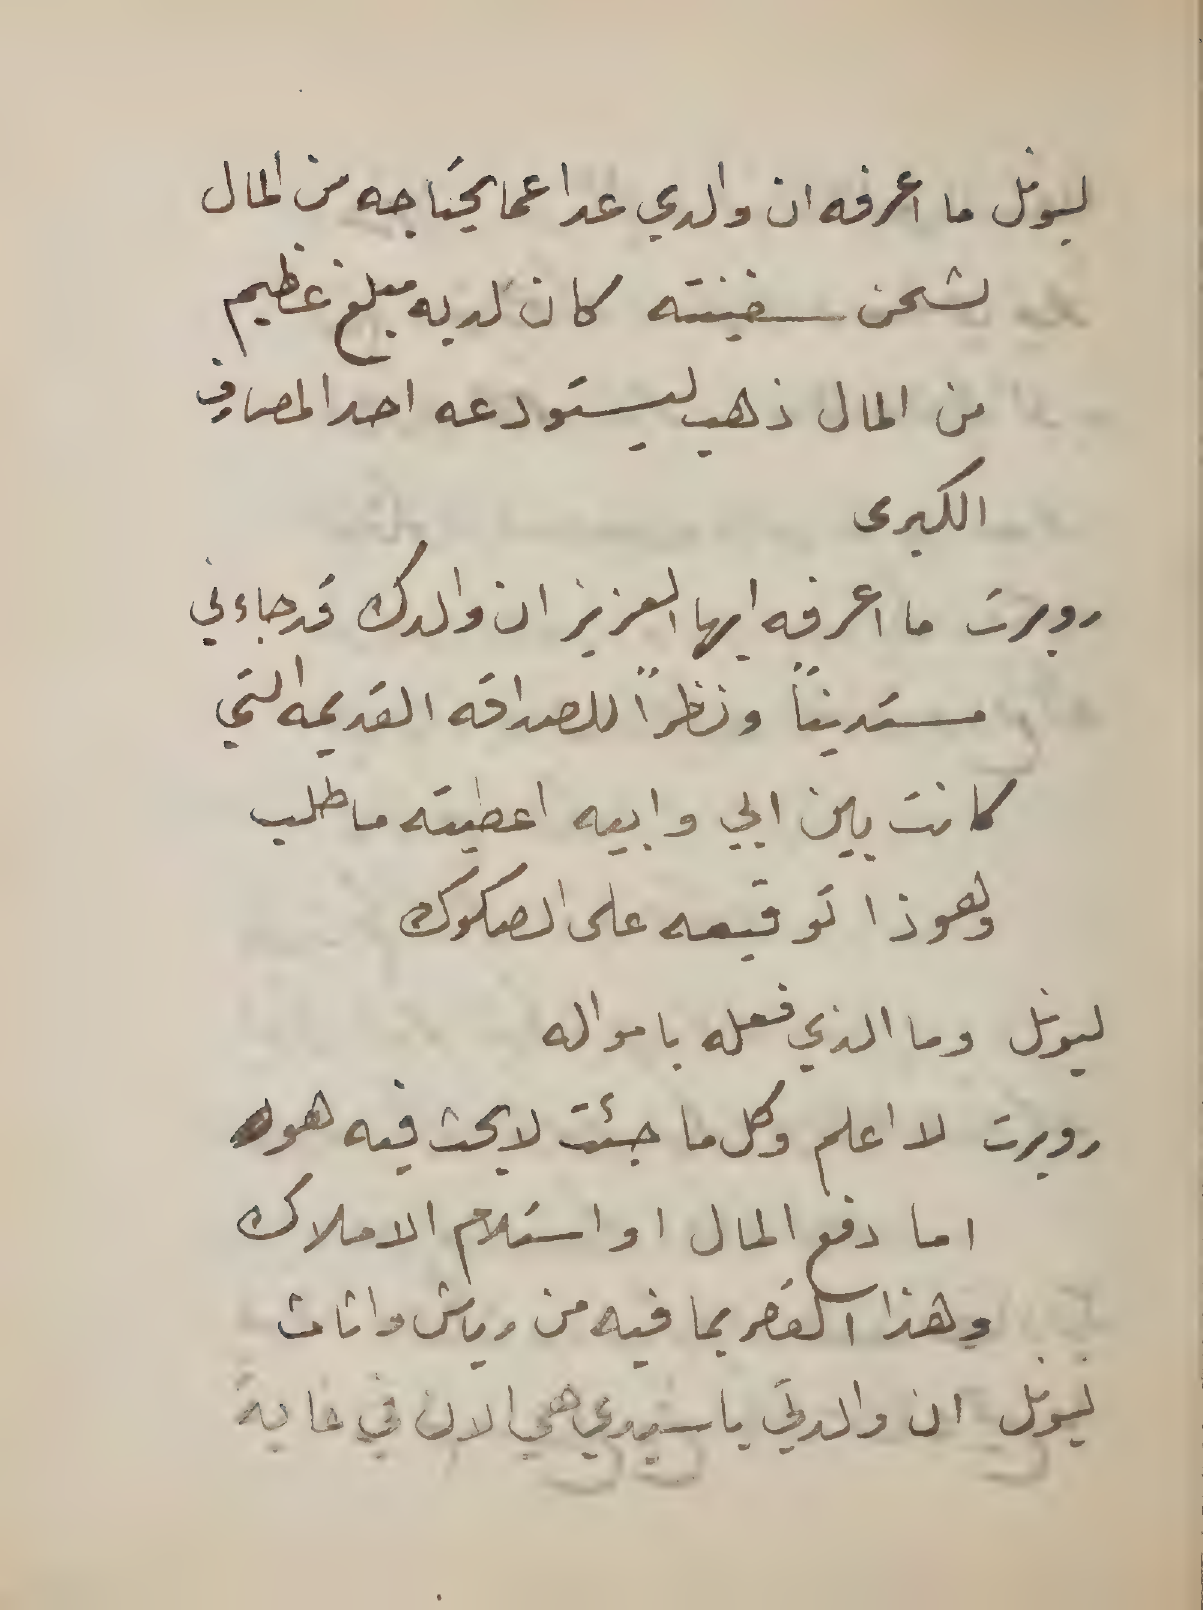 ليونل ما اعرفه ان والدي عدا عما يحتاجه من المال
لشحن سفينته كان لديه مبلغ عظيم
من المال ذهب ليستودعه احد المصارف
الكبرى
روبرت ما اعرفه ايها العزيز ان والدك قد جاءني
مستديناً ونظراً للصداقه القديمه التي
كانت بين ابي وابيه اعطيته ما طلب
وهوذا توقيعه على الصكوك
ليونل وما الذي فعله بامواله
روبرت لا اعلم وكل ما جئت لابحث فيه هو
اما دفع المال او استلام الاملاك
وهذا القصر بما فيه من رياش واثاث
ليونل ان والدتي يا سيدي هي الان في غاية